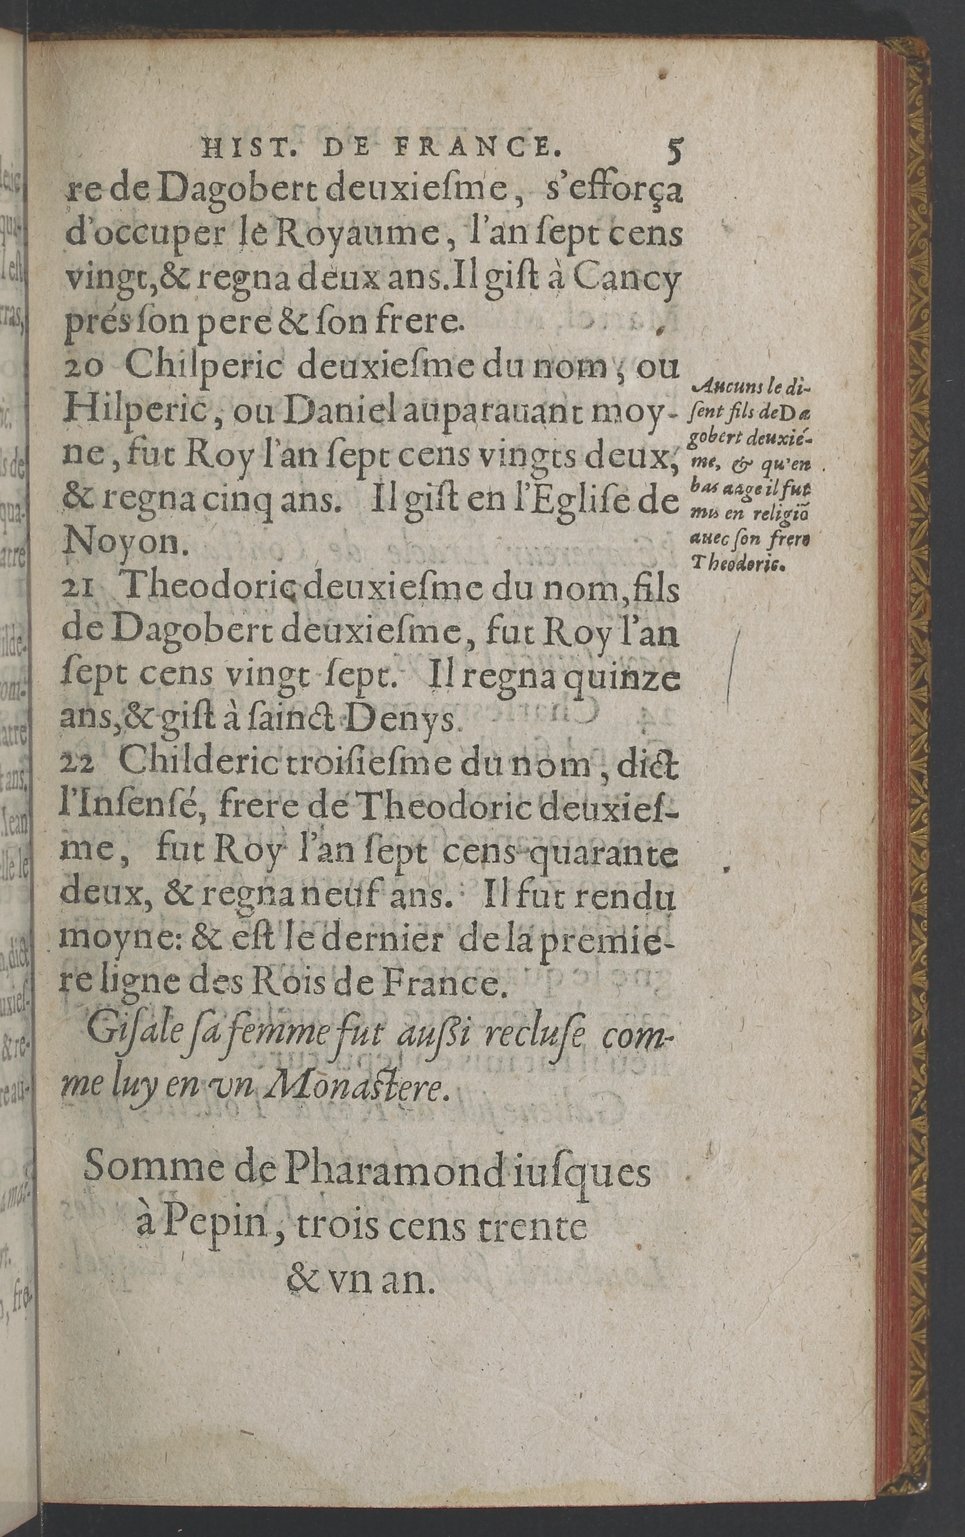 HIST. DE FRANCE. 5
re de Dagobert deuxieſme, s'efforça
d'occuper le Royaume, l'an ſept cens
vingt, & regna deux ans. Il giſt à Cancy
prés ſon pere & ſon frere.
20 Chilperic deuxieſme du nom, ou
Hilperic, ou Daniel auparauant moy-
ne, fut Roy l'an ſept cens vingts deux,
& regna cinq ans. Il giſt en l'Egliſe de
Noyon.
Aucuns le di-
ſent fils de Da
gobert deuxié-
me, & qu'en
bas aage il fut
mis en religiõ
auec ſon frere
Theodoric.
21 Theodoric deuxieſme du nom, fils
de Dagobert deuxieſme, fut Roy l'an
ſept cens vingt ſept. Il regna quinze
ans, & giſt à ſainct Denys.
22 Childeric troiſieſme du nom, dict
l'Inſenſé, frere de Theodoric deuxieſ-
me, fut Roy l'an ſept cens quarante
deux, & regna neuf ans. Il fut rendu
moyne: & eſt le dernier de la premie-
re ligne des Rois de France.
Giſale ſa femme fut auſſi recluſe com-
me luy en vn Monaſtere.
Somme de Pharamond iuſques
à Pepin, trois cens trente
& vn an.